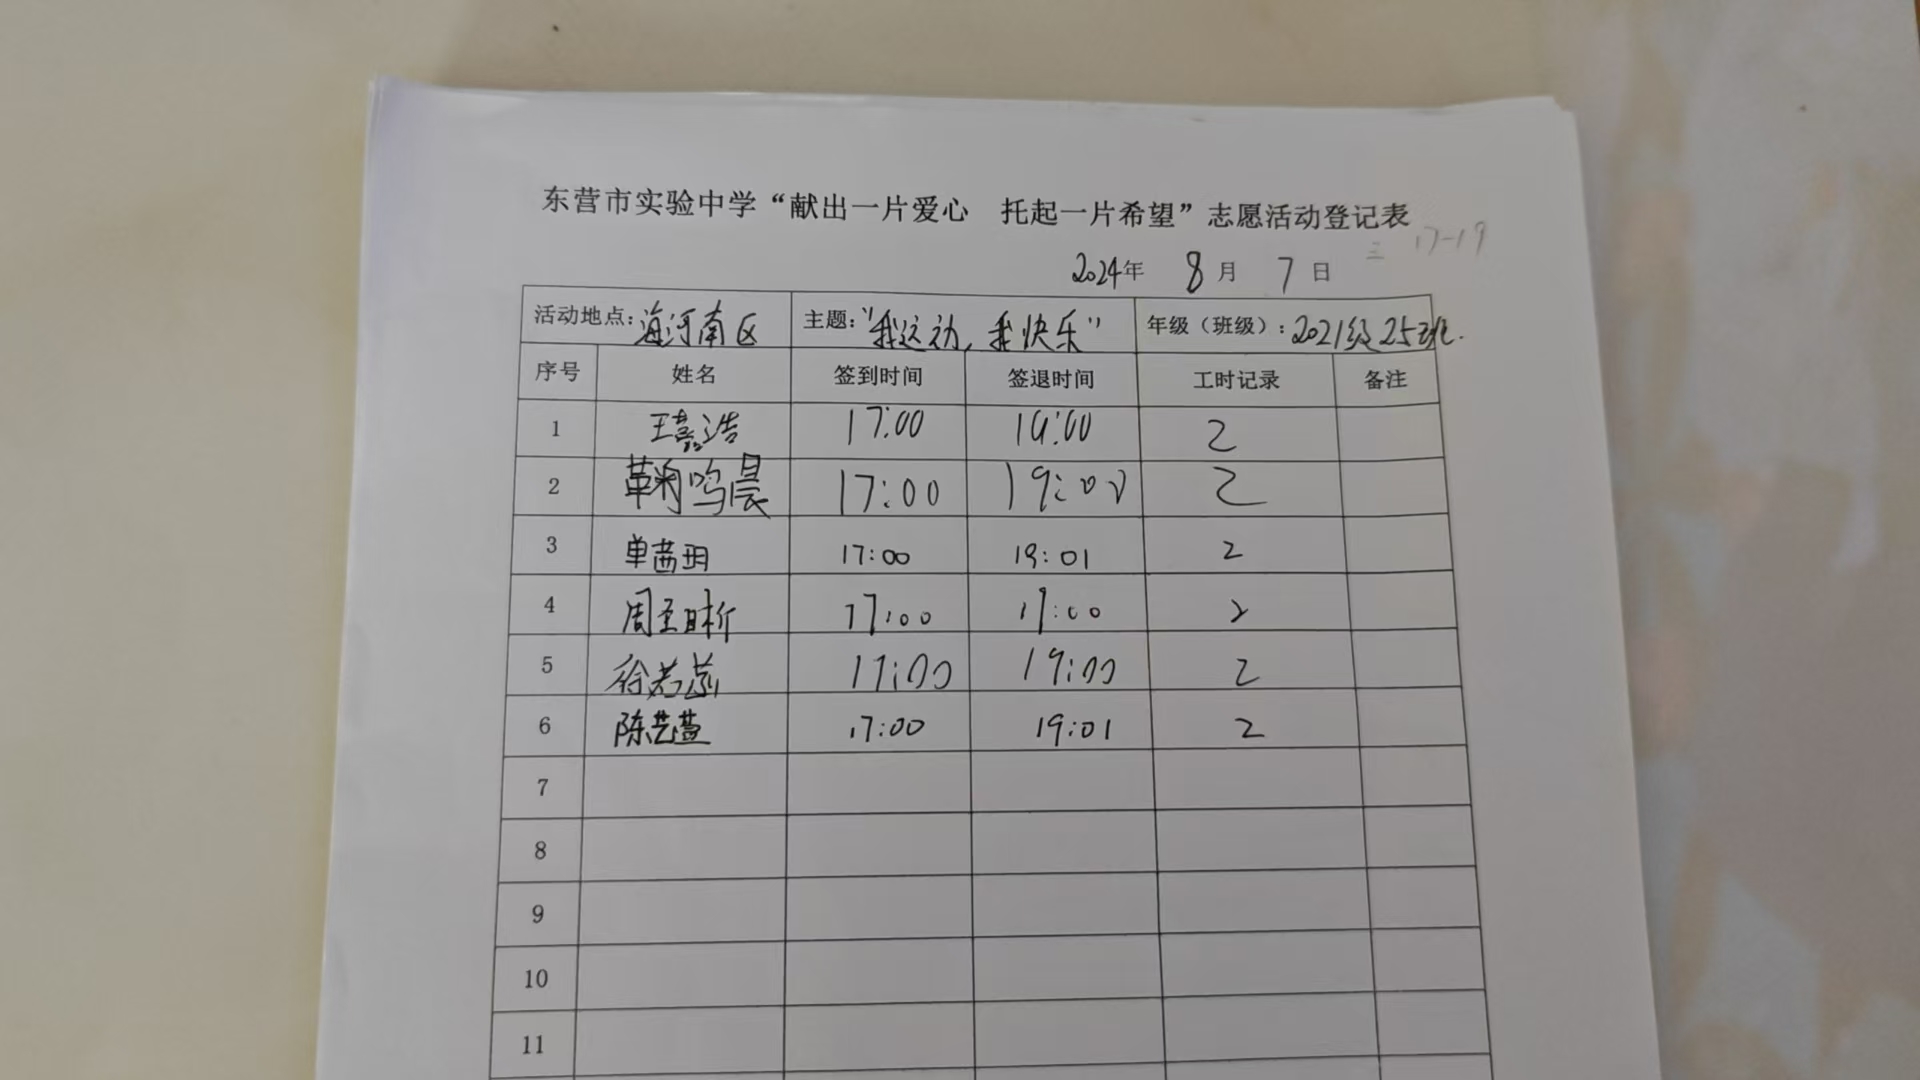 东营市实验中学“献出一片爱心 托起一片希望”志愿活动登记表
三 17-19
2024年 8月 7日
活动地点：海河南区 主题：“我运动，我快乐” 年级（班级）：2021级25班.
序号 姓名 签到时间 签退时间 工时记录 备注
1 王嘉浩 17:00 19:00 2
2 鞠鸣晨 17:00 19:00 2
3 单茜玥 17:00 19:01 2
4 周 17:00 19:00 2
5 徐若蕊 17:00 19:00 2
6 陈艺萱 17:00 19:01 2
7
8
9
10
11